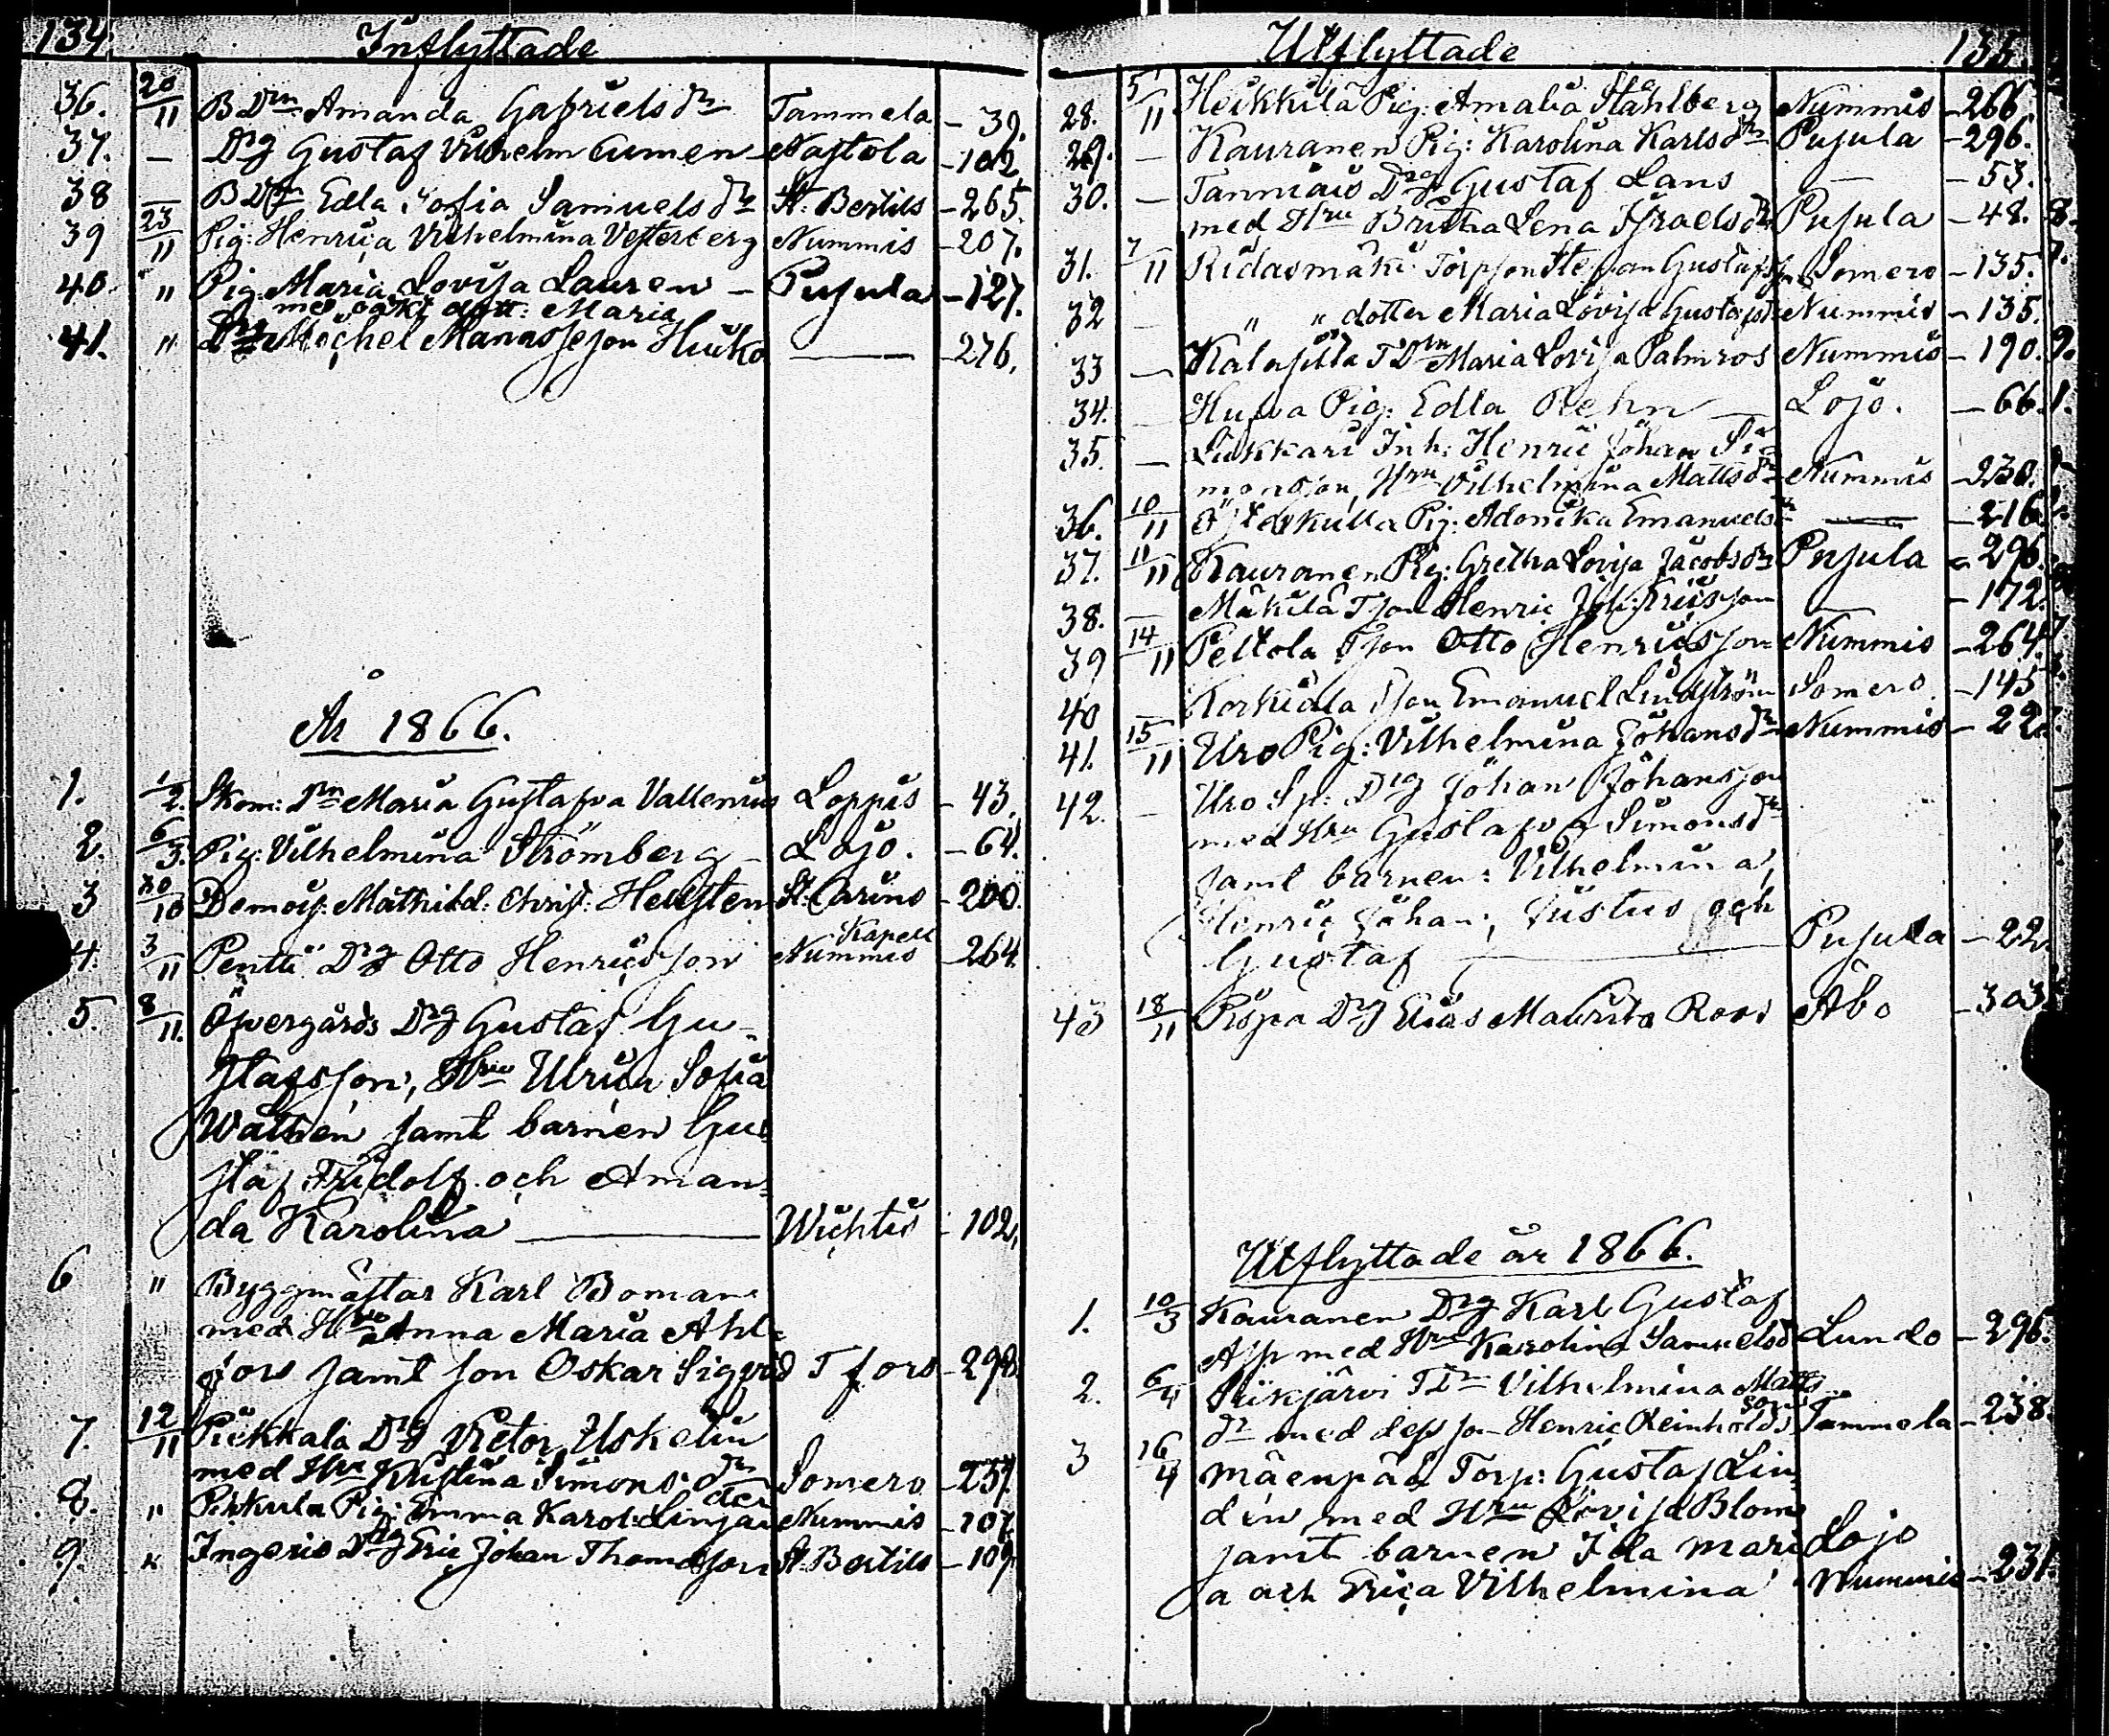 134. Inflyttade
36. 20/11 B Drn Amanda Gabrielsdr Tammela - 39.
37. — Drg Gustaf Vilhelm Cumen - Nastola - 102
38 — B Drn Edla Sofia Samuelsdr St. Bertils - 265.
39 23/11 Pig: Henrica Vilhelmina Vesterberg Nummis - 207.
40. " Pig. Maria Lovisa Lauren — Pusula - 127.
med oäkt dott: Maria
41. " Drg Michel Manassesson Huiko — 276.
År 1866.
1. 1/2. Skom: Drn Maria Gustafva Vallenius Loppis - 43.
2. 6/3. Pig: Vilhelmina Strömberg - Lojo. - 64.
3 30/10 Demois. Mathild: Christ: Hellsten St. Carins - 200.
4. 3/11 Pentti Drg Otto Henricsson Nummis Kapell 264.
5. 8/11. Öfvergårds Drg Gustaf Gu-
stafsson, Hru Ulrica Sofia
Wathén samt barnen Gus
staf Fridolf och Aman-
da Karolina — Wichtis - 102,
6 " Byggmästar Karl Boman
med Hru Anna Maria Ahl-
fors samt son Oskar Sigfrid T fors - 298
7. 12/11 Piekkala Drg Victor Uskelin
med Hru Kristina Simonsdr Somero - 257.
8. " Pirkula Pig: Emma Karol: Linjander Nummis - 107.
9. " Ingeris Drg Eric Johan Thomasson St. Bertils - 109
Utflyttade 135
28. 5/11 Heikkilä Pig: Amalia Ståhlberg Nummis - 266
29. — Kauranen Pig: Karolina Karlsdr Pusula - 296.
30. — Tanniais Drg Gustaf Lans — - 53.
med Hru Britha Lena Israelsdr Pusula - 48.
31. 7/11 Ridasmäki Torpson Stefan Gustafss Somero - 135.
32 — " " dotter Maria Lovisa Gustafsd Nummis - 135.
33 — Kalasilla T Drn Maria Lovisa Palmros Nummis - 190.
34. Huova Pig: Edla Rehn — Lojo. - 66.
35. — Liukkari Inh: Henric Johan Si
monsson, Hru Vilhelmina Mattsdr Nummis - 230.
36. 10/11 Österkulla Pig: Adonika Emanuelsdr — - 216
37. 11/11 Kauranen Pig: Gretha Lovisa Jacobsdr Pusula - 296.
38. — Mäkilä Tson Henric Joh: Ericsson — - 172.
39 14/11 Peltola Tson Otto Henricsson Nummis - 264.
40 — Korkiala Tson Emanuel Lindström Somero - 145
41. 15/11 Uro Pig: Vilhelmina Johansdr Nummis - 22.
42. — Uro Sp: Drg Johan Johansson
med Hru Gustafva Simonsdr
samt barnen: Vilhelmina,
Henric Johan, Justus och
Gustaf — Pusula - 22.
43 18/11 Röpa Drg Elias Maurits Roos Åbo - 303
Utflyttade år 1866.
1. 10/3 Kauranen Drg Karl Gustaf
Asp med Hru Karolina Samuelsd Lundo - 296.
2. 6/4 Piikjärvi T Drn Vilhelmina Matts
dr med dess son Henric Reinholds son Tammela - 238.
3 16/4 Mäenpää Torp: Gustaf Lin-
dén med Hru Lovisa Blom
samt barnen Ida Mari Lojo
a och Erica Vilhelmina Nummis - 231.